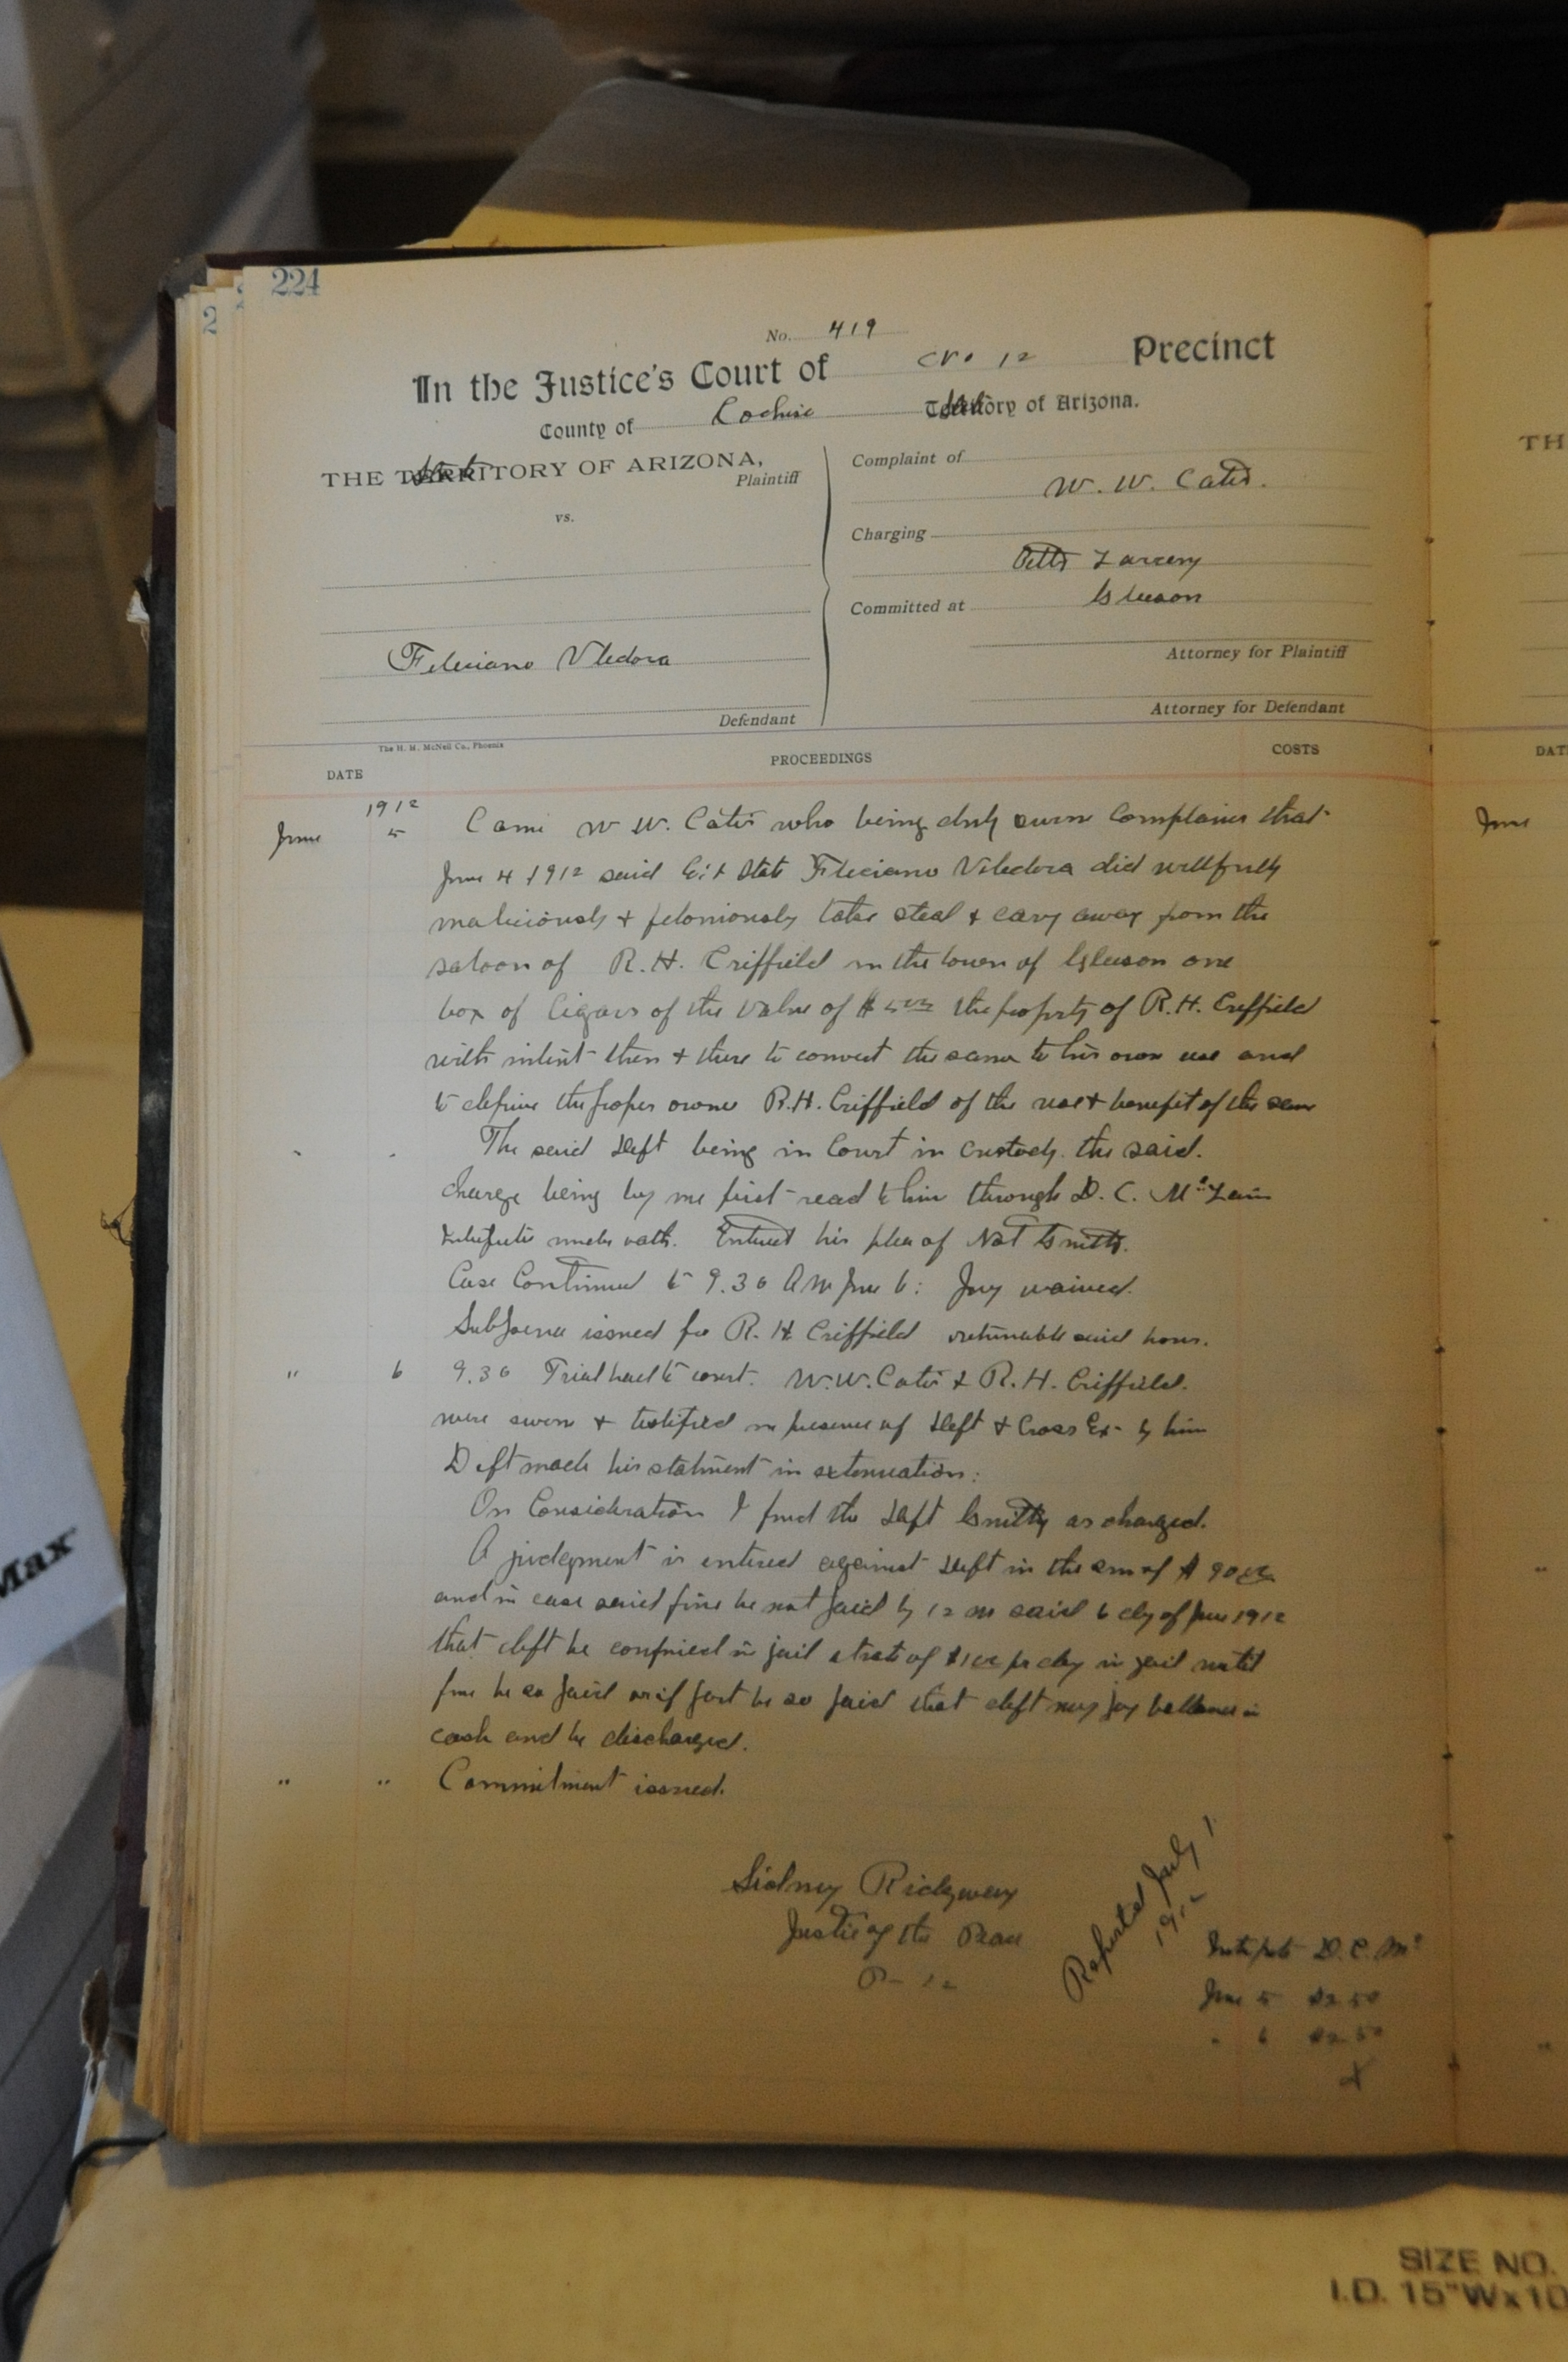 224
2
No. 419
In the Justice's Court of No 12 Precinct
County of Cochise State Territory of Arizona.
THE State TERRITORY OF ARIZONA,
Plaintiff
vs.
Feleciano Viledora
Defendant
Complaint of
W. W. Cates.
Charging
Petty Larceny
Committed at Gleeson
Attorney for Plaintiff
Attorney for Defendant
The H. H. McNeil Co., Phoenix
DATE PROCEEDINGS COSTS
1912
June 5 Came W W. Cates who being duly sworn Complains that
June 4 1912 said Co & State Feleciano Viledora did willfully
maliciously & feloniously take steal & cary away from the
saloon of R. H. Criffield in the town of Gleeson one
box of Cigars of the value of $5 00 the property of R. H. Criffield
with intent then & there to convert the same to his own use and
to deprive the proper owner R. H. Criffield of the use & benefit of the same
The said Deft being in Court in custody. the said.
charge being by me first read to him through D. C. McLain
Interpreter under oath. Entered his plea of Not Guilty.
Case Continued to 9.30 A M June 6: Jury waived.
Subpoena issued for R. H. Criffield returnable said hour.
" 6 9.30 Trial had to court. W. W. Cates & R. H. Criffield.
were sworn & testified in presence of Deft & Cross Ex- by him
Deft made his statment in extenuation:
On Consideration I find the Deft Guilty as charged.
A judgment is entered against Deft in the sum of $ 90 00
and in case said fine be not paid by 12 M said 6 day of June 1912
that deft be confined in jail at rate of $1 00 per day in jail until
fine be so paid or if part be so paid that deft may pay ballance in
cash and be discharged.
" " Commitment issued.
Sidney Ridgway
Justice of the Peace
P- 12
Reported July 1
1912
Interpt D. C. Mc
June 5 $2.50
" 6 $2.50
DATE
June
TH
Max
SIZE NO.
I.D. 15"Wx10